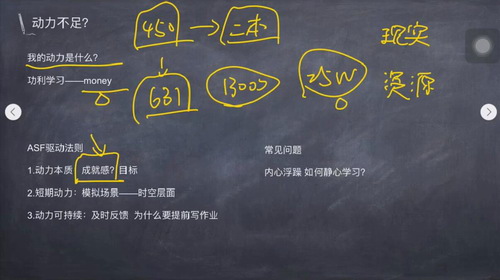 动力不足?
450 → 二本
现实
我的动力是什么?
功利学习——money
631
13000
25W
资源
ASF驱动法则
常见问题
1.动力本质 成就感? 目标
内心浮躁 如何静心学习?
2.短期动力：模拟场景——时空层面
3.动力可持续：及时反馈 为什么要提前写作业